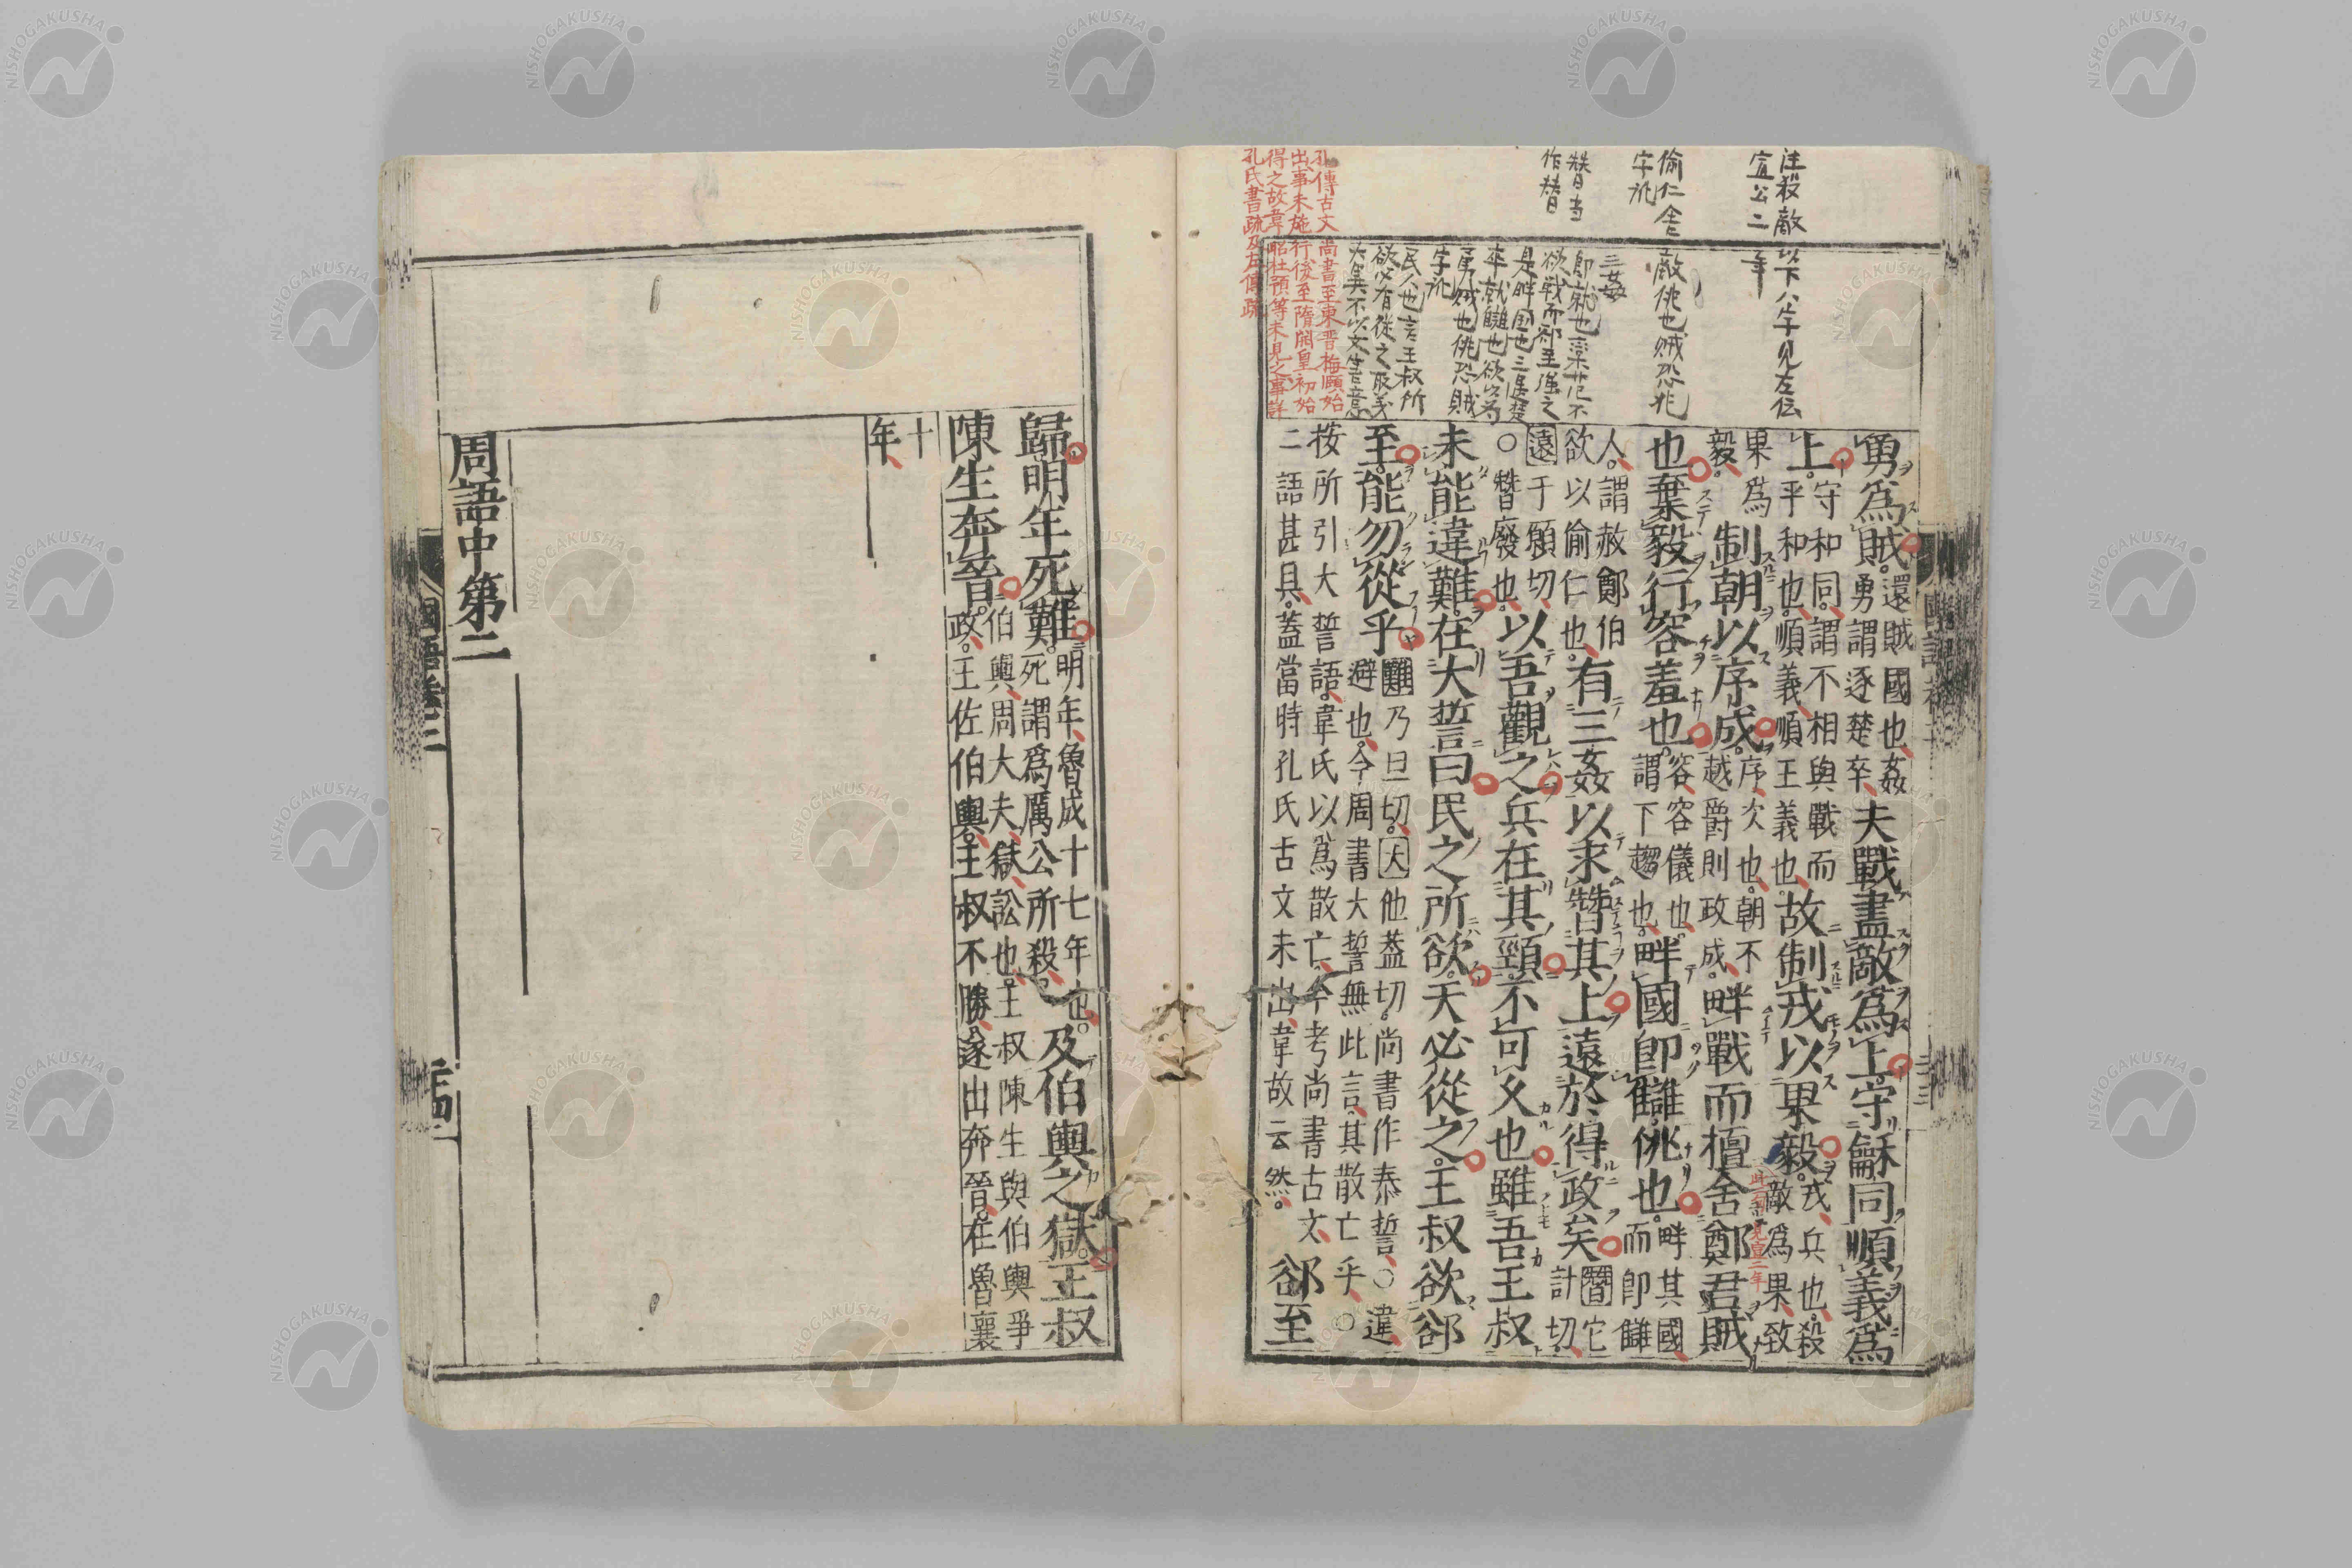 注殺敵以下八字見左伝
宣公二年
偷仁舍敵佻也賊恐非
字訛
朁当
作替
三姦
即就也欒范不
欲戰而郤至強之
是畔国也三逐楚
卒就讎也欲以為
勇賊也佻恐賊
字訛
民人也言王叔所
欲必有從之取義
孔傳古文尚書至東晋梅頤始
出事未施行後至隋開皇初始
得之故韋昭杜預等未見之事詳
孔氏書疏及左傳疏
勇爲賊。還賊國也、姦勇謂逐楚卒、夫戰盡敵爲上守龢同順義爲
上。守和同、謂不相與戰而平和也、順義、順王義也、故制戎以果毅。戎、兵也、殺敵爲果、致
果爲毅。制朝以序成。序、次也、朝不越爵則政成。畔戰而擅舍鄭君賊
此二句見宣二年
也棄毅行容羞也。容、容儀也、謂下趨也、畔國即讎佻也。畔其國而即讎
人、謂赦鄭伯欲以偷仁也。有三姦以求朁其上遠於得政矣朁它計切、
遠于願切、○朁廢也、以吾觀之兵在其頸不可久也雖吾王叔
未能違難在大誓曰民之所欲天必從之王叔欲郤
至能勿從乎難乃旦切、大他蓋切。尚書作泰誓、○違避也、今周書大誓無此言、其散亡乎、○
按所引大誓語、韋氏以爲散亡、今考尚書古文、二語甚具、蓋當時孔氏古文未出、韋故云然。郤至
歸。明年死難。明年、魯成十七年也。死謂爲厲公所殺、及伯輿之獄王叔
陳生奔晉。伯輿、周大夫、獄、訟也、王叔陳生與伯輿爭政、王佐伯輿、王叔不勝、遂出奔晉、在魯襄
十年、
周語中第二
國語卷二
二十四